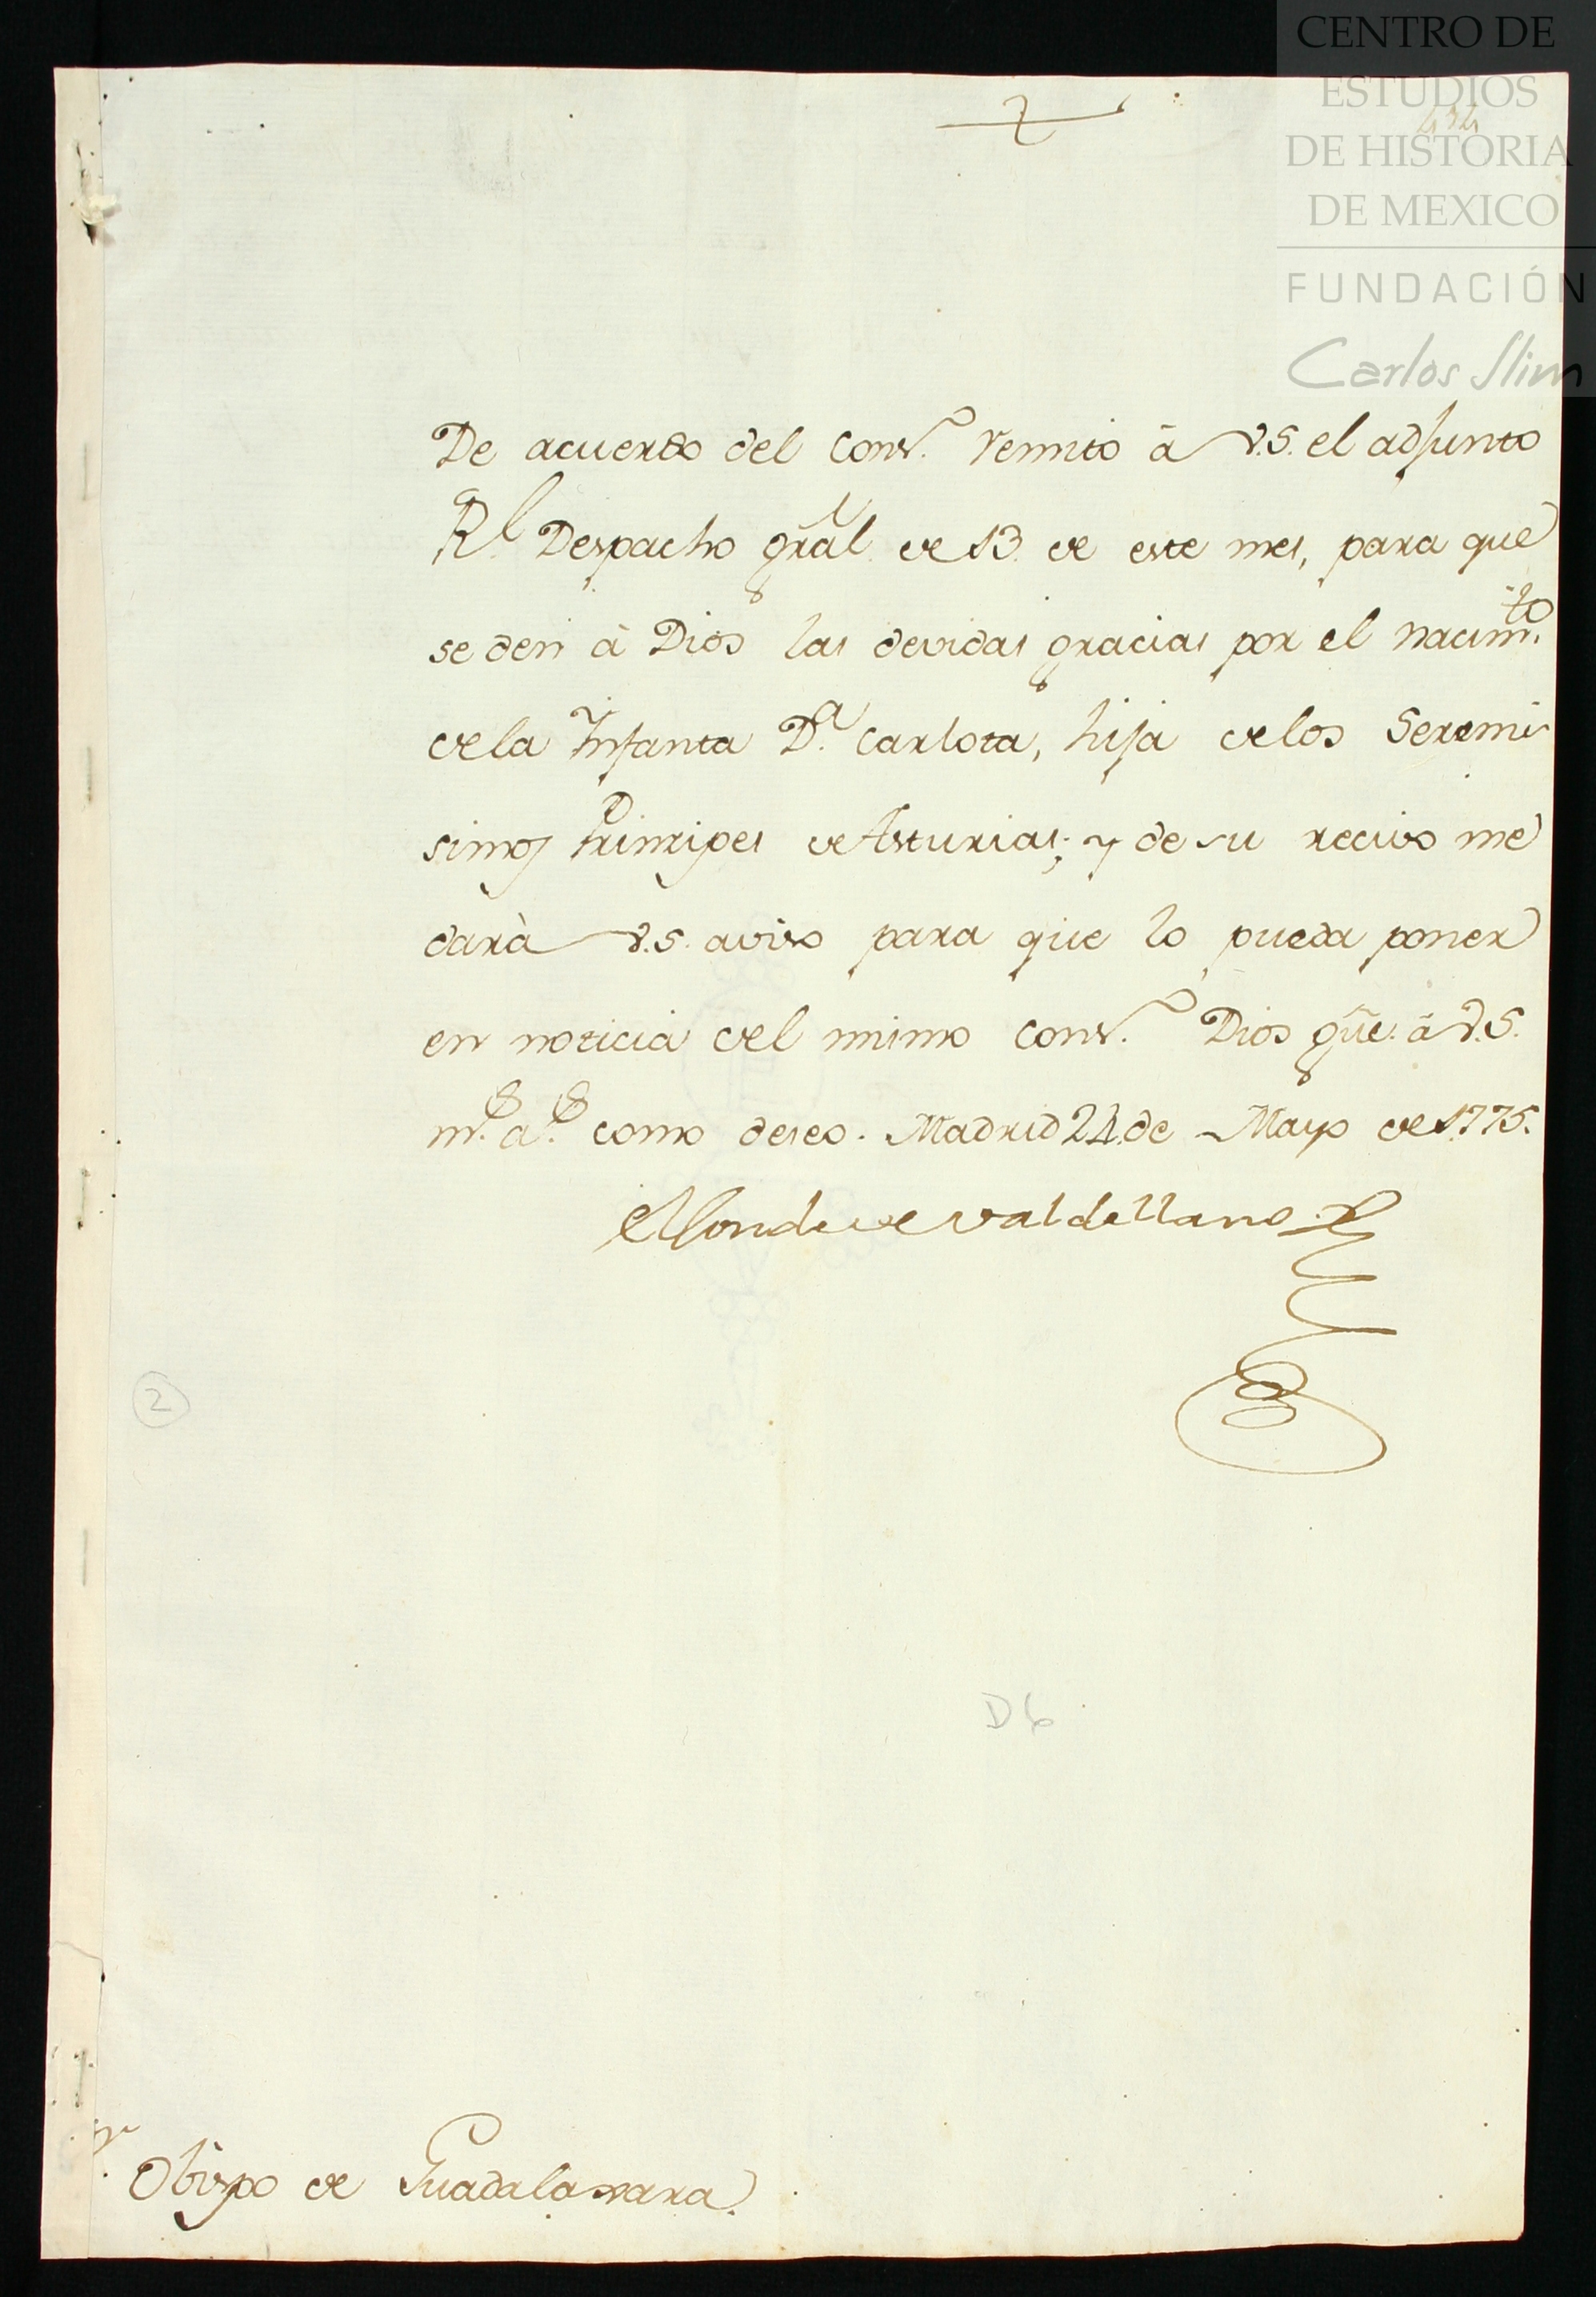 CENTRO DE
ESTUDIOS
DE HISTORIA
DE MEXICO
FUNDACIÓN
Carlos Slim
434
De acuerdo del Cons.º remito à V.S. el adjunto
Rl. Despacho gräl. de 13. de este mes, para que
se den à Dios las devidas gracias por el nacim.to
de la Infanta D.a Carlota, hija de los Sereni-
simos Principes de Asturias; y de su recivo me
darà V.S. aviso para que lo pueda poner
en noticia del mismo Cons.º Dios güe. à V.S.
m.s a.s como deseo. Madrid 24. de Mayo de 1775.
El Conde de Valdellano
2
D6
Sr. Obispo de Guadalaxara.